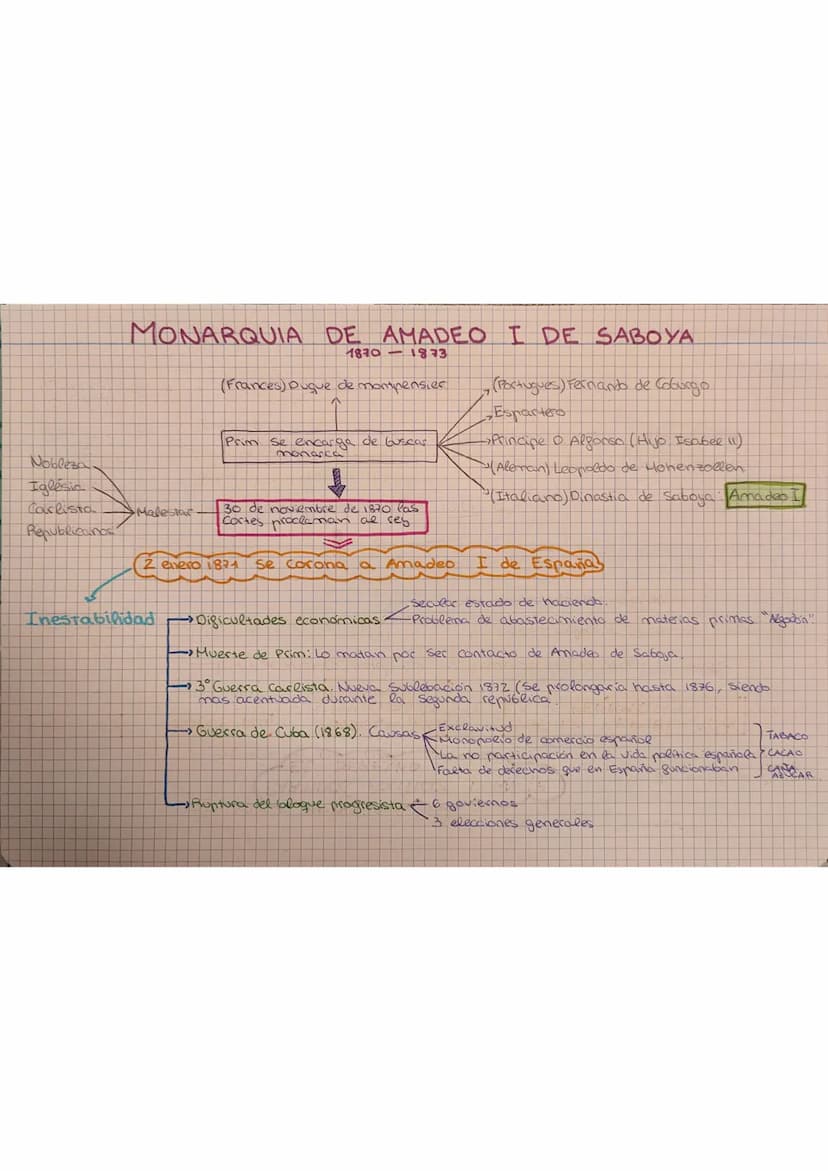 MONARQUIA DE AMADEO I DE SABOYA
1870 — 1873
(Frances) Duque de montpensier
(Portugues) Fernando de Coburgo
Espartero
Prim se encarga de buscar
monarca
Principe D. Alfonso (Hijo Isabel II)
(Aleman) Leopoldo de Hohenzollen
(Italiano) Dinastia de Saboya: Amadeo I
Nobleza
Iglésia
Carlista
Republicanos
Malestar
30 de noviembre de 1870 las
cortes proclaman al rey
2 enero 1871 se corona a Amadeo I de España
Inestabilidad
Dificultades económicas
Secular estado de hacienda.
Problema de abastecimiento de materias primas "Algodón"
Muerte de Prim: Lo matan por ser contacto de Amadeo de Saboja.
3º Guerra Carlista. Nueva sublebación 1872 (Se prolongaria hasta 1876, siendo
mas acentuada durante la segunda republica.
Guerra de Cuba (1868). Causas
Exclavitud
Monopolio de comercio español
La no participación en la vida política española
Falta de derechos que en España funcionaban
TABACO
CACAO
CAÑA
AZUCAR
Ruptura del bloque progresista
6 goviernos
3 elecciones generales